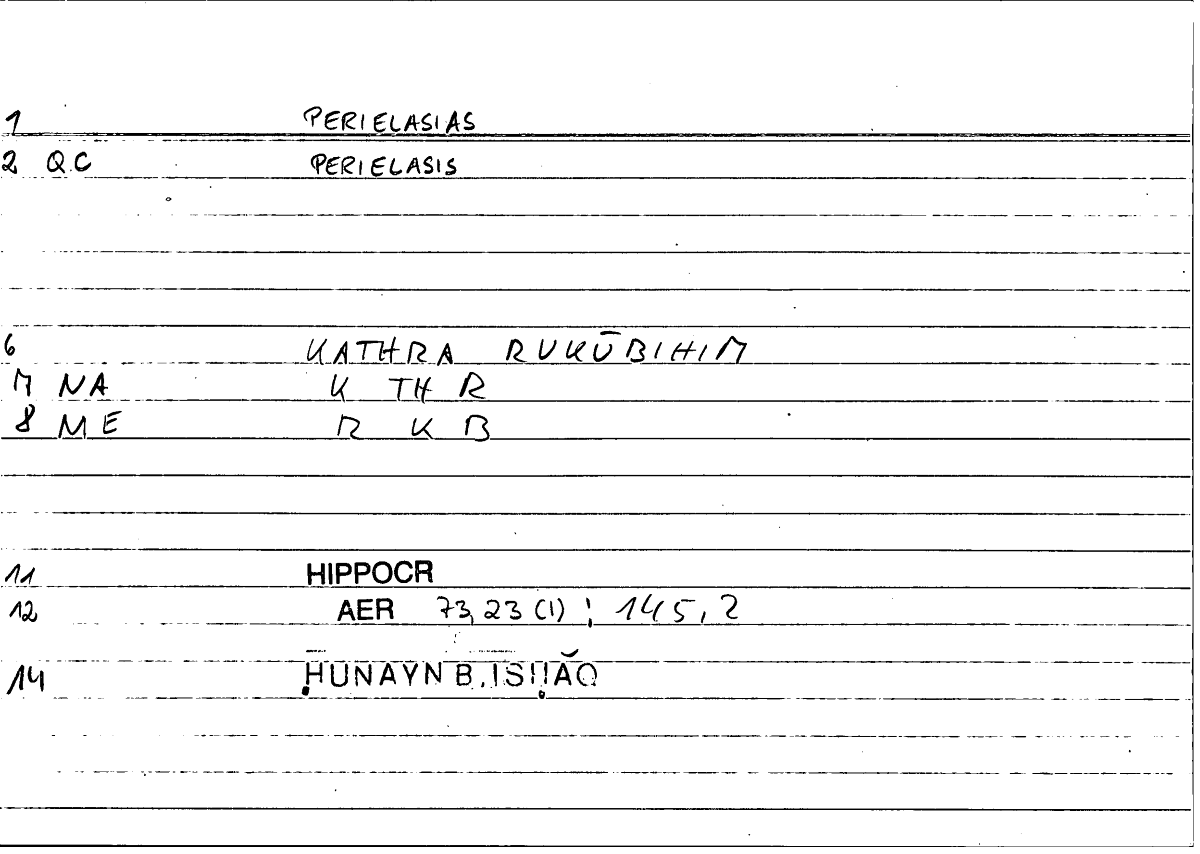 1 PERIELASIAS
2 QC PERIELASIS
6 KATHRA RUKŪBIHIM
7 NA K TH R
8 ME R K B
11 HIPPOCR
12 AER 73,23 (1) ; 145,2
14 ḤUNAYN B. ISḤĀQ